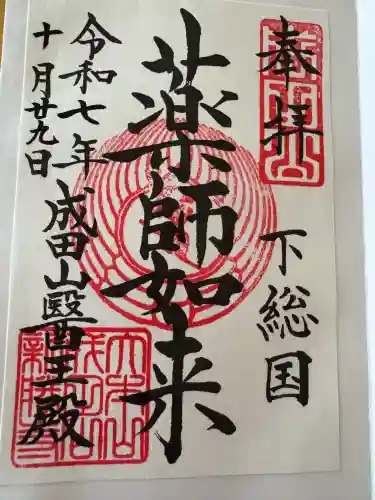 奉拝
下総国
薬師如来
令和七年
十月廿九日
成田山醫王殿